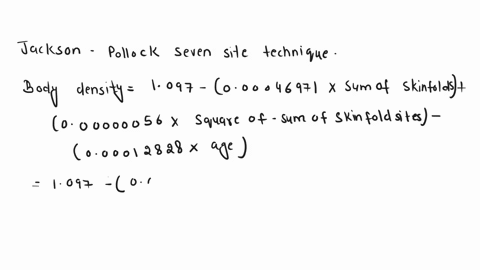 Jackson - Pollock seven site technique.
Body density = 1.097 - (0.00046971 x sum of skinfolds) +
(0.00000056 x square of - sum of skinfold sites) -
(0.00012828 x age)
= 1.097 - (0.